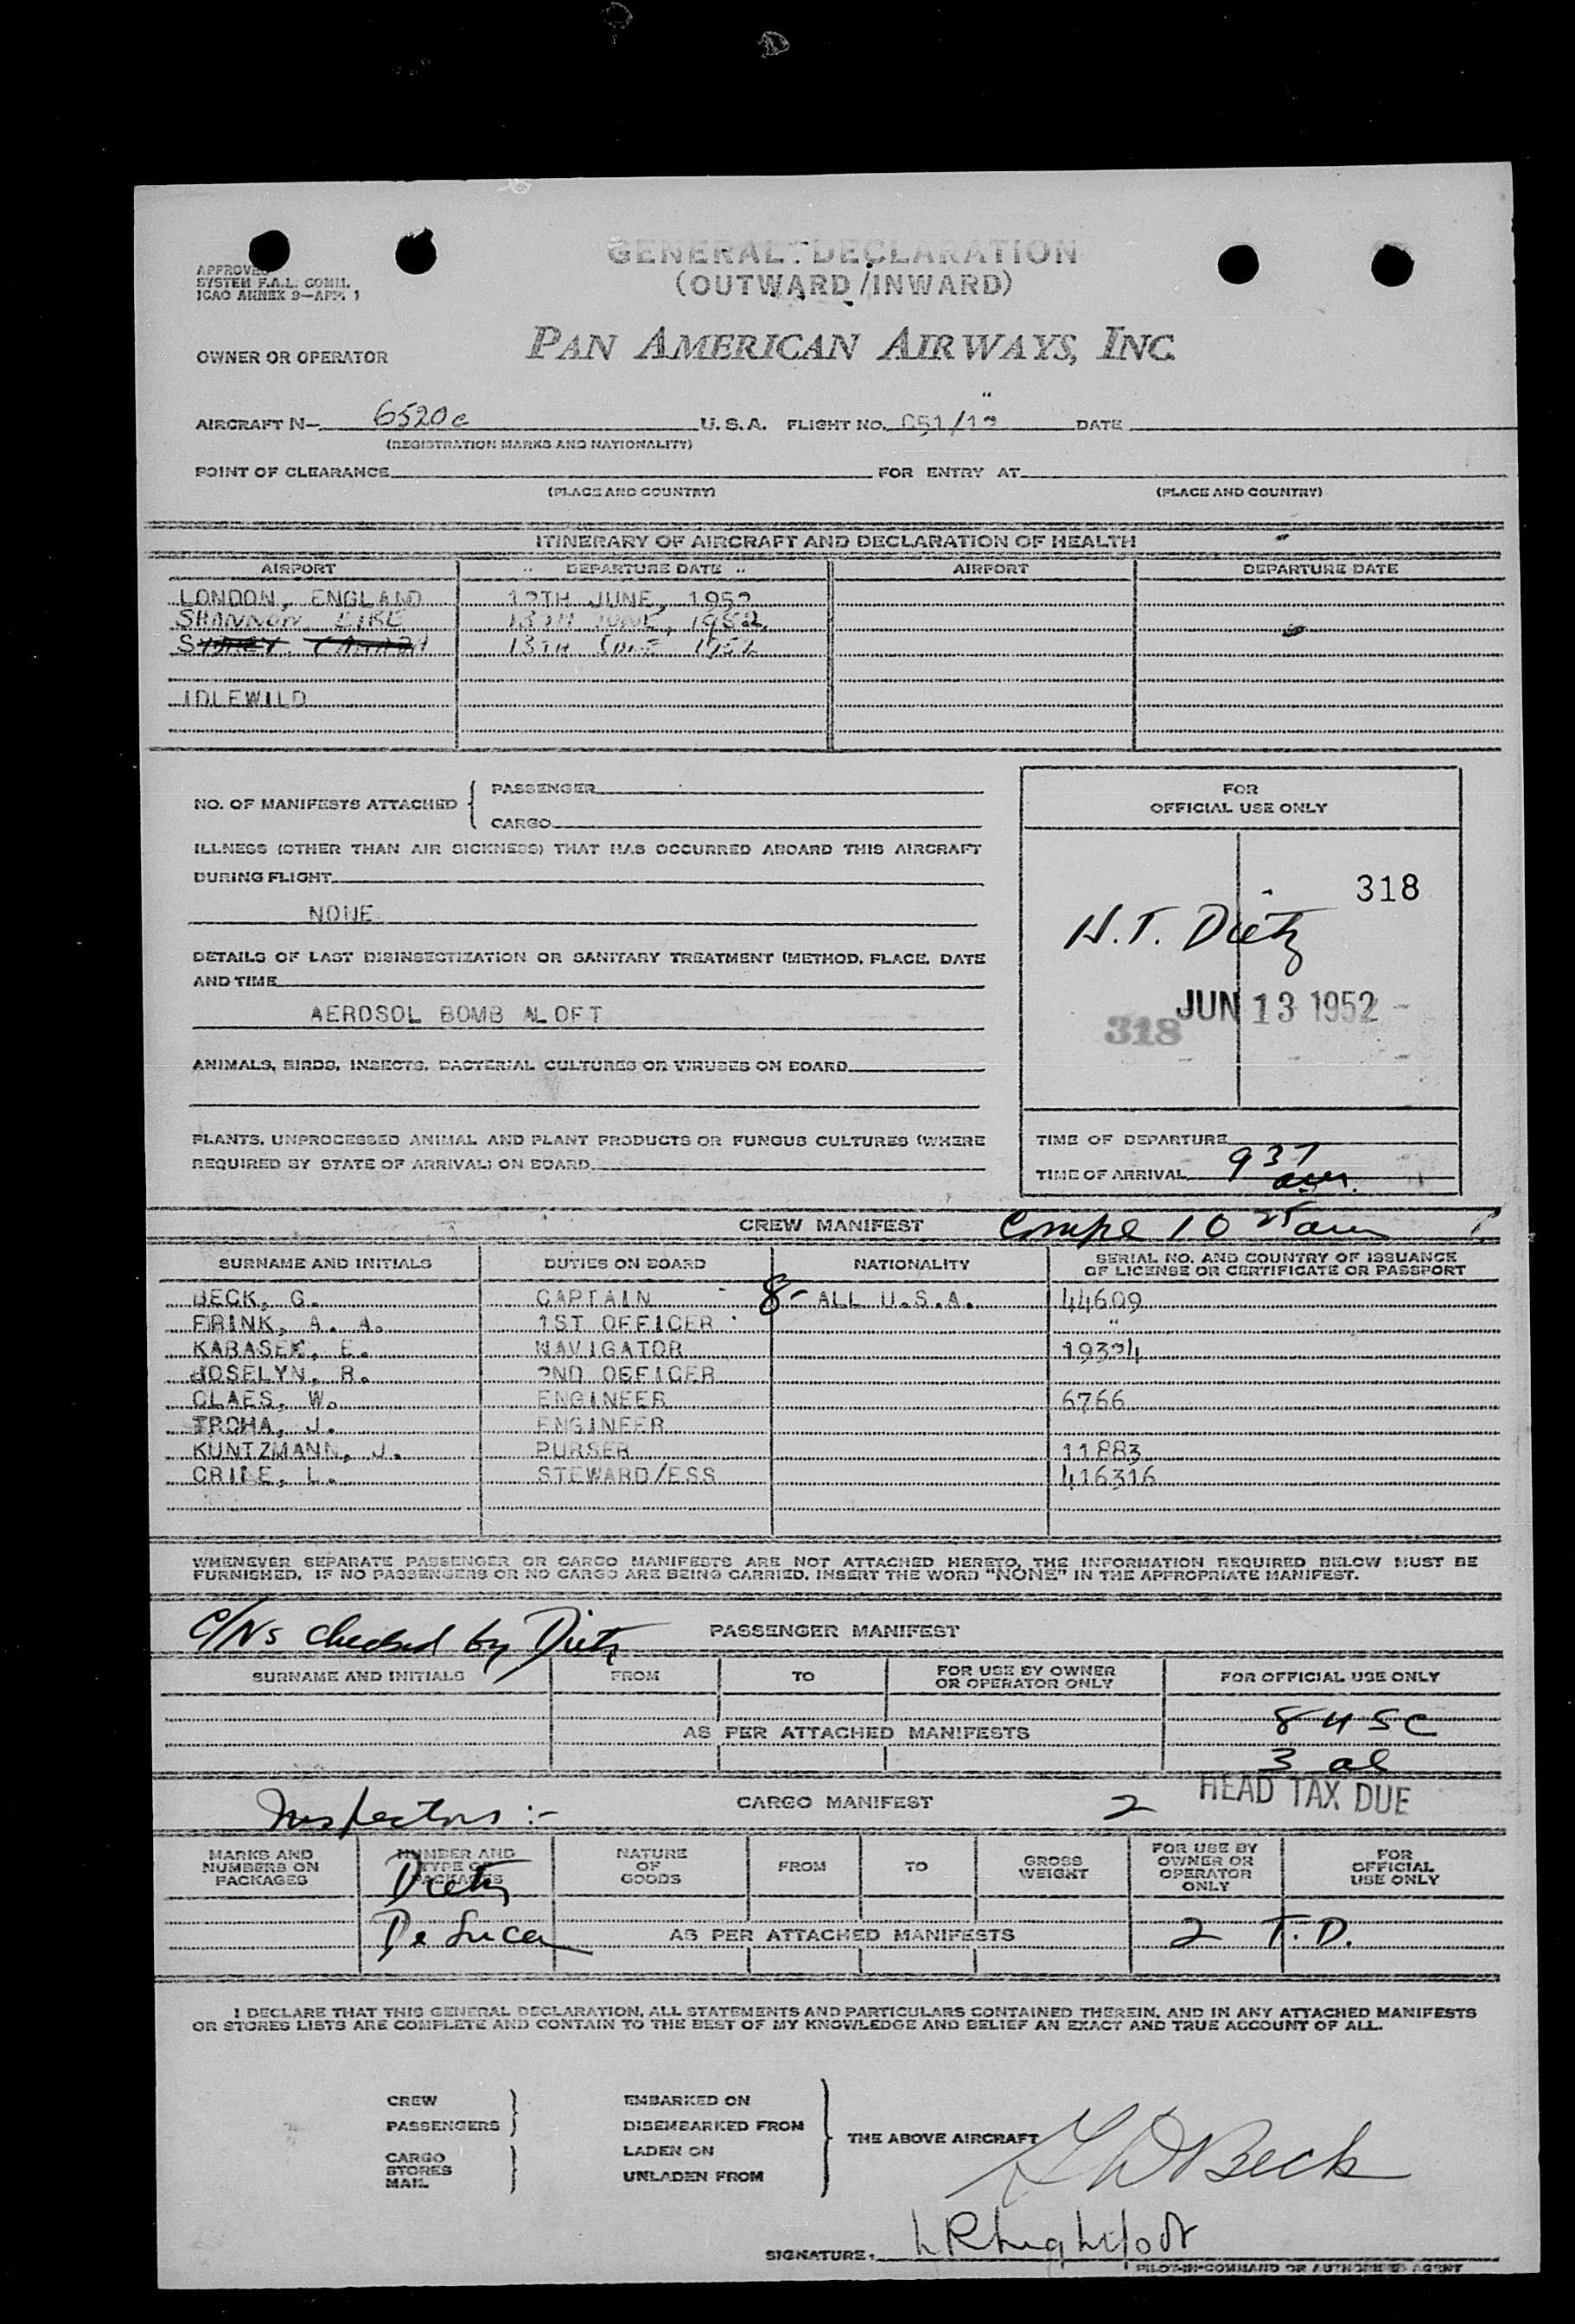 GENERAL DECLARATION
(OUTWARD/INWARD)
APPROVED
SYSTEM F.A.L. COMM.
ICAO ANNEX 9—APP. 1
OWNER OR OPERATOR PAN AMERICAN AIRWAYS, INC.
AIRCRAFT N— 6520c U.S.A. FLIGHT NO. 051/12 DATE
(REGISTRATION MARKS AND NATIONALITY)
POINT OF CLEARANCE FOR ENTRY AT
(PLACE AND COUNTRY) (PLACE AND COUNTRY)
ITINERARY OF AIRCRAFT AND DECLARATION OF HEALTH
AIRPORT DEPARTURE DATE AIRPORT DEPARTURE DATE
LONDON, ENGLAND 12TH JUNE, 1952
SHANNON, EIRE 13TH JUNE, 1952.
13TH JUNE 1952
IDLEWILD
NO. OF MANIFESTS ATTACHED { PASSENGER
CARGO
ILLNESS (OTHER THAN AIR SICKNESS) THAT HAS OCCURRED ABOARD THIS AIRCRAFT
DURING FLIGHT
NONE
DETAILS OF LAST DISINSECTIZATION OR SANITARY TREATMENT (METHOD, PLACE, DATE
AND TIME
AEROSOL BOMB ALOFT
ANIMALS, BIRDS, INSECTS, BACTERIAL CULTURES OR VIRUSES ON BOARD
PLANTS, UNPROCESSED ANIMAL AND PLANT PRODUCTS OR FUNGUS CULTURES (WHERE
REQUIRED BY STATE OF ARRIVAL) ON BOARD
FOR
OFFICIAL USE ONLY
318
H.T. Dietz
JUN 13 1952
318
TIME OF DEPARTURE
TIME OF ARRIVAL 9 37 am.
CREW MANIFEST Comple 10 25 am
SURNAME AND INITIALS DUTIES ON BOARD NATIONALITY SERIAL NO. AND COUNTRY OF ISSUANCE
OF LICENSE OR CERTIFICATE OR PASSPORT
BECK, G. CAPTAIN 8- ALL U.S.A. 44609
FRINK, A. A. 1ST OFFICER "
KARASEK, E. NAVIGATOR 19324
JOSELYN, R. 2ND OFFICER
CLAES, W. ENGINEER 6766
TROHA, J. ENGINEER
KUNTZMANN, J. PURSER 11883
CRILE, L. STEWARD/ESS 416316
WHENEVER SEPARATE PASSENGER OR CARGO MANIFESTS ARE NOT ATTACHED HERETO, THE INFORMATION REQUIRED BELOW MUST BE
FURNISHED. IF NO PASSENGERS OR NO CARGO ARE BEING CARRIED, INSERT THE WORD "NONE" IN THE APPROPRIATE MANIFEST.
C/Ns checked by Dietz PASSENGER MANIFEST
SURNAME AND INITIALS FROM TO FOR USE BY OWNER
OR OPERATOR ONLY FOR OFFICIAL USE ONLY
8 USC
AS PER ATTACHED MANIFESTS
3 al
Inspectors :- CARGO MANIFEST 2 HEAD TAX DUE
MARKS AND
NUMBERS ON
PACKAGES NUMBER AND
TYPE OF
PACKAGES NATURE
OF
GOODS FROM TO GROSS
WEIGHT FOR USE BY
OWNER OR
OPERATOR
ONLY FOR
OFFICIAL
USE ONLY
Dietz
De Luca AS PER ATTACHED MANIFESTS 2 T.D.
I DECLARE THAT THIS GENERAL DECLARATION, ALL STATEMENTS AND PARTICULARS CONTAINED THEREIN, AND IN ANY ATTACHED MANIFESTS
OR STORES LISTS ARE COMPLETE AND CONTAIN TO THE BEST OF MY KNOWLEDGE AND BELIEF AN EXACT AND TRUE ACCOUNT OF ALL.
CREW EMBARKED ON
PASSENGERS DISEMBARKED FROM
THE ABOVE AIRCRAFT G W Beck
CARGO LADEN ON
STORES
MAIL UNLADEN FROM
SIGNATURE.
PILOT-IN-COMMAND OR AUTHORIZED AGENT